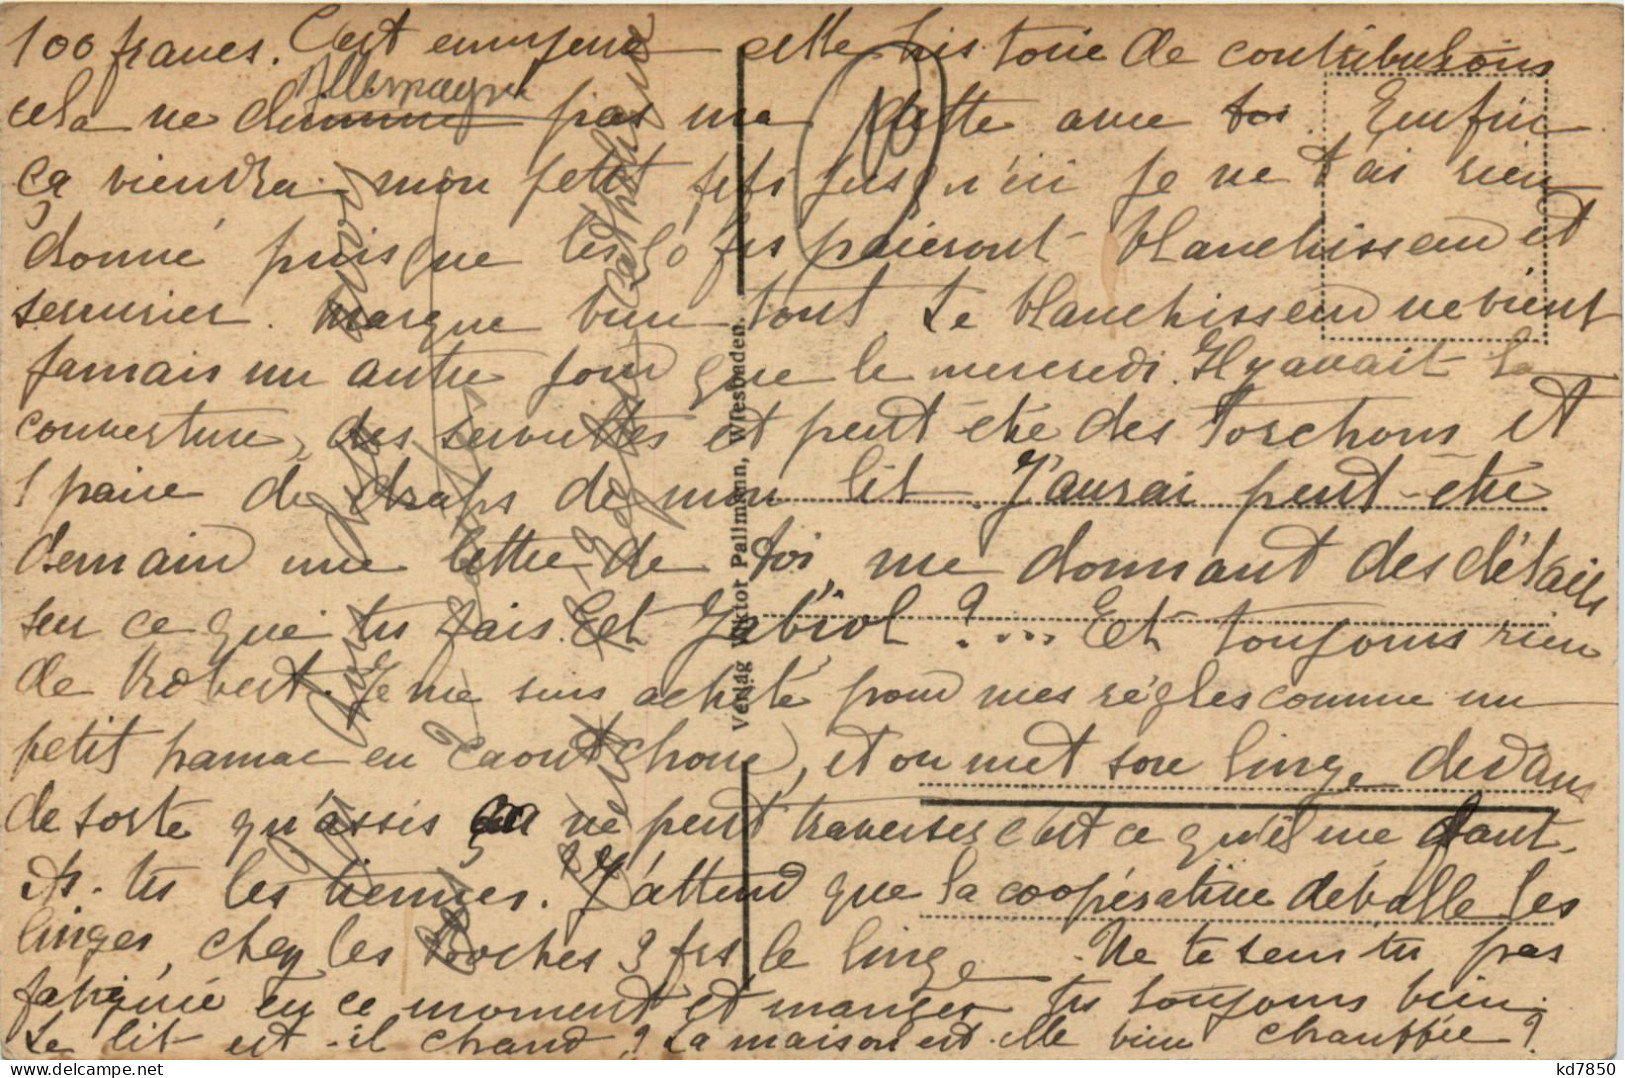 100 francs. C'est ennuyeux cette histoire de contributions
Allemagne
cela ne diminue pas ma dette avec toi. Enfin
10
ça viendra mon petit jusqu'ici je ne t'ai rien
donné puisque les 50 frs paieront blanchisseur et
serrurier. Marque bien tout. Le blanchisseur ne vient
jamais un autre jour que le mercredi. Il y avait la
couverture, des serviettes et peut-être des torchons et
1 paire de draps de mon lit. J'aurai peut-être
demain une lettre de toi me donnant des détails
sur ce que tu fais. Et Jabiol ?... Et toujours rien
de Robert. Je me suis acheté pour mes règles comme un
petit hamac en caoutchouc, et on met son linge dedans
de sorte qu'assis ça ne peut traverser c'est ce qu'il me faut.
As-tu les tiennes. J'attend que la coopérative déballe les
linges, chez les boches 3 frs le linge. Ne te sens tu pas
fatiguée en ce moment et manges tu toujours bien.
Le lit est-il chaud ? La maison est-elle bien chauffée ?
Verlag Viktor Pallmann, Wiesbaden.
kd7850